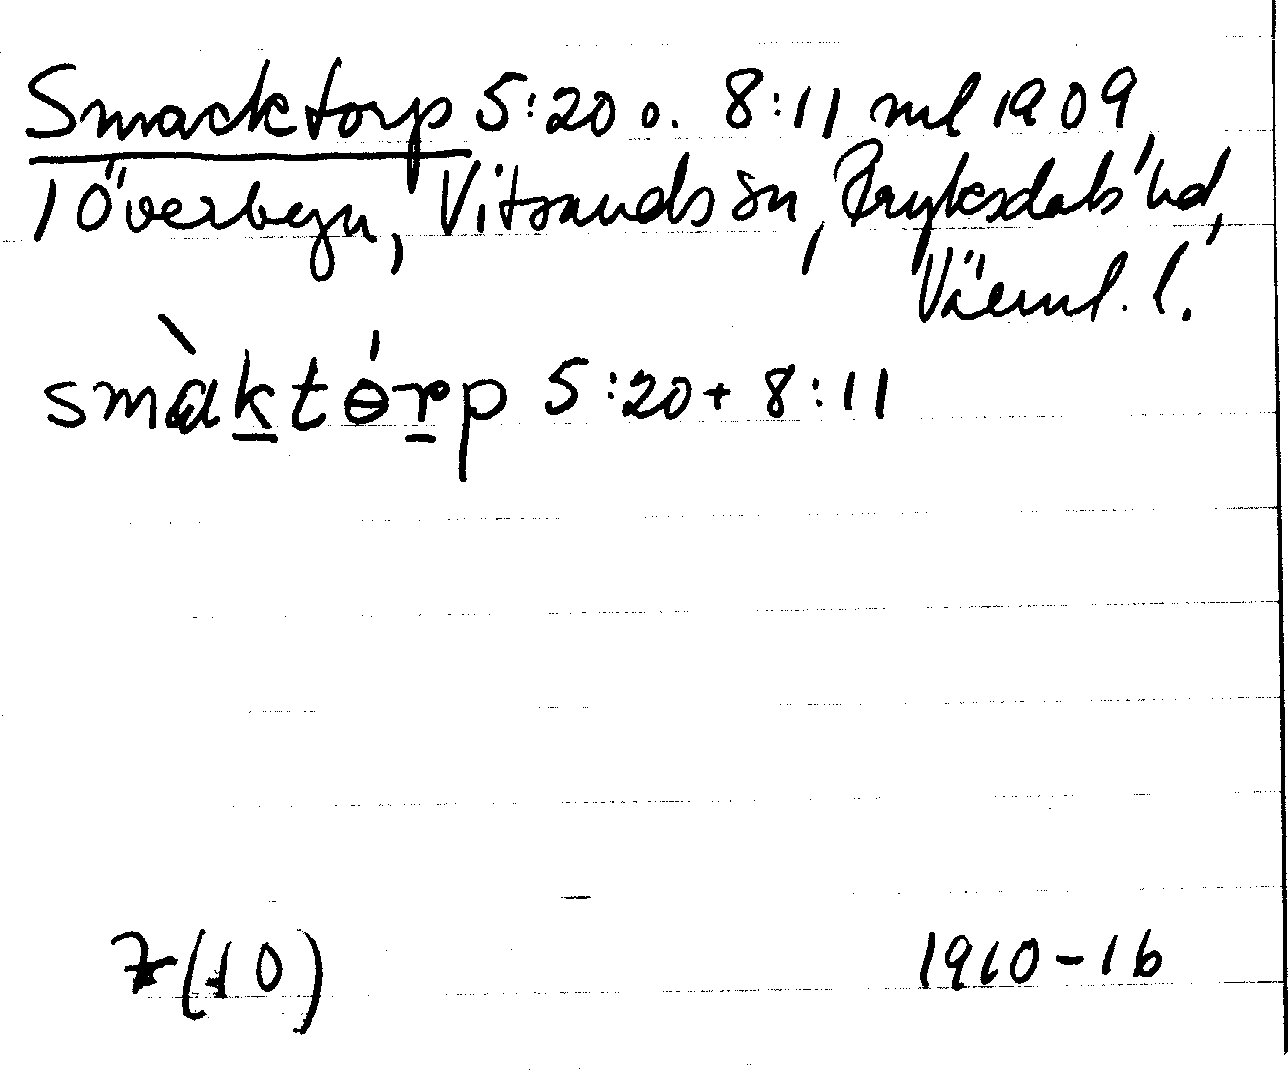 Smacktorp 5:20 o. 8:11 ml 1909,
1 Överbyn, Vitsands sn, Fryksdals hd,
Värml. l.
smàktɵ́rp 5:20 + 8:11
7(10) 1910-16